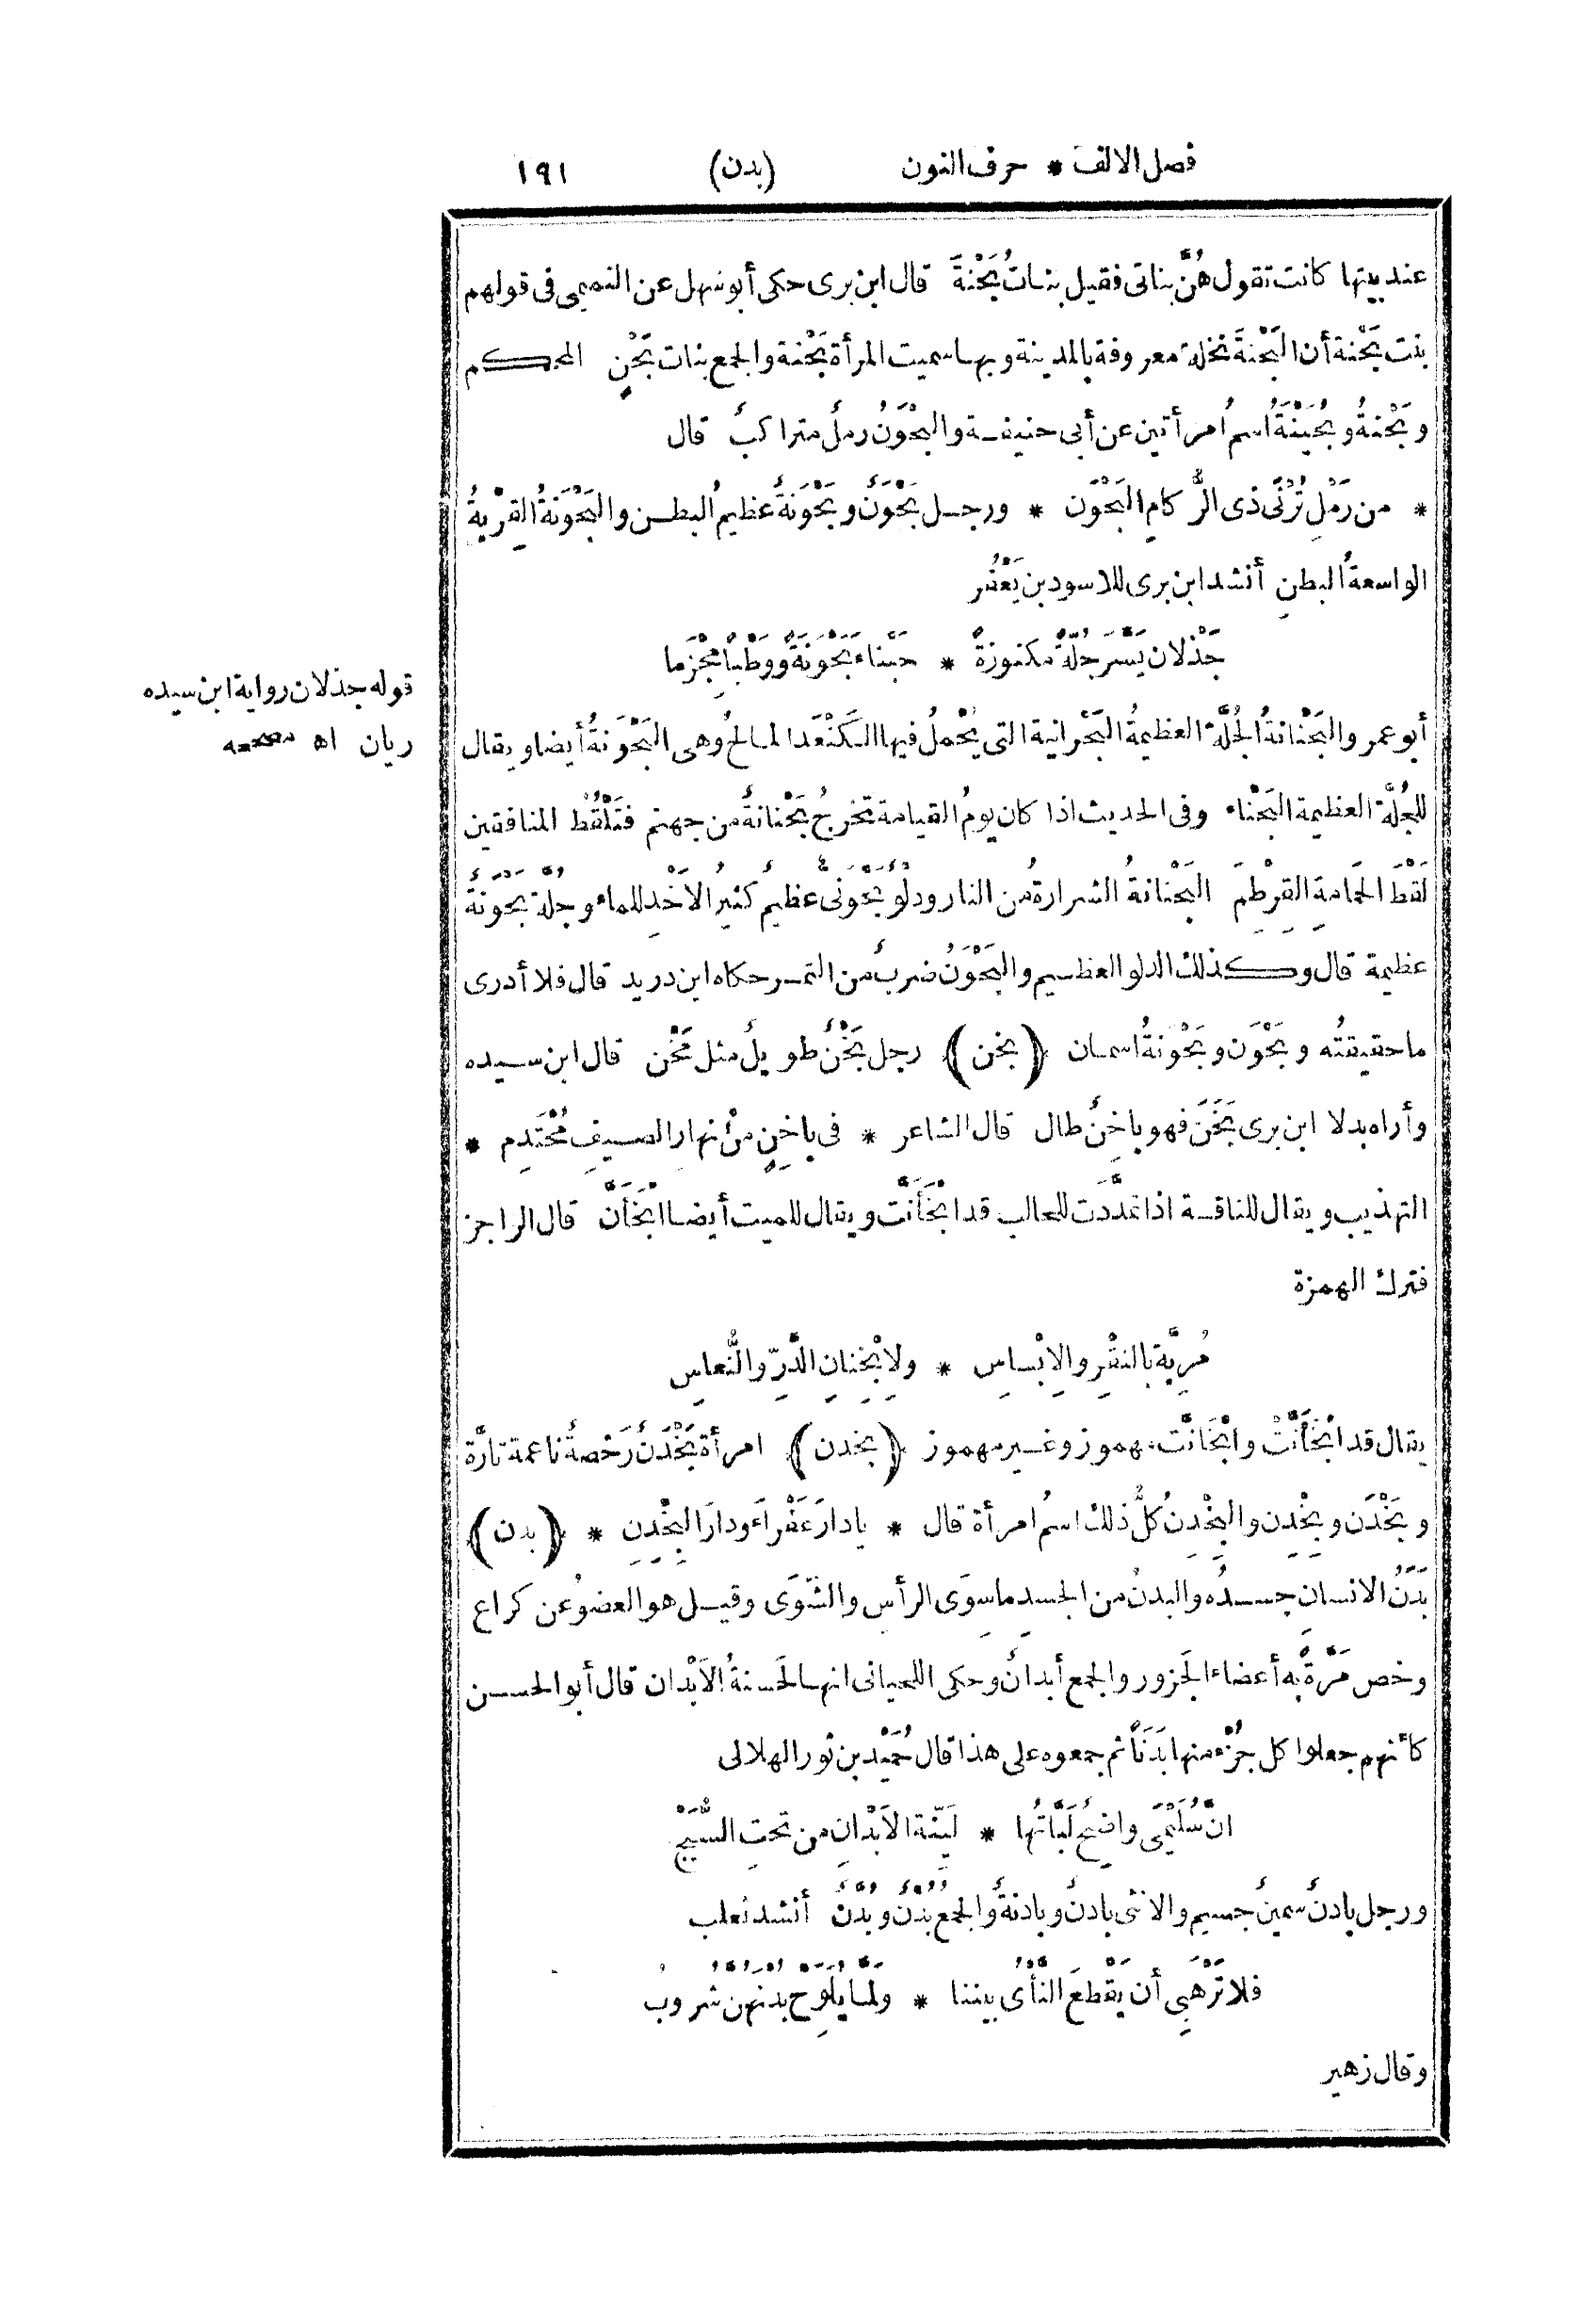 فصل الالف * حرف النون (بدن) ١٩١
عند بيتها كانت تقول هُنَّ بناتى فقيل بنات بَحْنةَ قال ابن برى حكى أبو سهل عن التميمى فى قولهم
بنت بَحْنة أن البَحْنَةَ نخلة معروفة بالمدينة وبها سميت المرأة بَحْنة والجمع بنات بَحْنٍ المحكم
وبَحْنةُ وبُحَيْنَةُ اسمُ امرأتين عن أبى حنيفة والبَحْوَنُ رملٌ متراكبٌ قال
* من رَمْلِ تُرْنَى ذى الرُّكامِ البَحْوَن * ورجل بَحْوَنٌ وبَحْوَنةٌ عظيمُ البطن والبَحْوَنةُ القِرْبةُ
الواسعةُ البطنِ أنشد ابن برى للاسود بن يَعْفُر
جَذْلان يَسَّرَ جُلّةً مكنوزةً * حَبْناءَ بَحْوَنةً ووَطْباً مِجْزَما
أبو عمرو البَحْنانةُ الجُلَّة العظيمةُ البَحْرانية التى يُحْمَلُ فيها الكَنْعَد المالحُ وهى البَحْوَنةُ أيضا ويقال
للجُلَّة العظيمة البَحْناء وفى الحديث اذا كان يومُ القيامة تخرجُ بَحْنانةٌ من جهنم فتَلْقُط المنافقين
لَقْطَ الحَمامةِ القِرْطِمَ البَحْنانةُ الشرارةُ من النار ودلْوٌ بَحْوَنىٌّ عظيمٌ كثيرُ الاَخْذِ للماء وجُلّة بَحْوَنةٌ
عظيمة قال وكذلك الدلو العظيم والبَحْوَنُ ضربٌ من التمر حكاه ابن دريد قال فلا أدرى
ما حقيقتُه وبَحْوَن وبَحْوَنةُ اسمان (بخن) رجل بَخْنٌ طويلٌ مثل مَخْن قال ابن سيده
وأراه بدلا ابن برى بَخَنَ فهو باخِنٌ طال قال الشاعر * فى باخِنٍ مِنْ نهار الصيفِ مُحْتَدِم *
التهذيب ويقال للناقة اذا تمدَّدت للحالب قد ابْخَأَنَّت ويقال للميت أيضا ابْخَأَنَّ قال الراجز
فترك الهمزة
مُرِيَّة بالنقْرِ والاِبْساسِ * ولابْخِنانِ الدَّرِّ والنُّعاسِ
يقال قد ابْخَأَنَّتْ وابْخَانَّت مهموز وغير مهموز (بخدن) امرأة بَخْدَنٌ رَخْصةٌ ناعمة تارَّة
وبَخْدَن وبِخْدِن والبِخْدِنُ كلُّ ذلك اسمُ امرأة قال * يا دارَ عَفْراءَ ودارَ البِخْدِنِ * (بدن)
بَدَنُ الانسانِ جسدُه والبدنُ من الجسدِ ما سِوَى الرأس والشَّوَى وقيل هو العضوُ عن كراع
وخص مَرّةً به أعضاءَ الجَزور والجمع أبدانٌ وحكى اللحيانى انها لَحَسنةُ الاَبْدان قال أبو الحسن
كأنهم جعلوا كل جُزْء منها بَدَناً ثم جمعوه على هذا قال حُمَيْد بن ثور الهلالى
انّ سُلَيْمَى واضِحٌ لَبَّاتُها * لَيِّنة الاَبْدانِ من تحتِ السُّبَجْ
ورجل بادنٌ سمينٌ جسيم والانثى بادنٌ وبادنةٌ والجمع بُدْنٌ وبُدَّنٌ أنشد ثعلب
فلا تَرْهَبِى أن يَقْطَعَ النَّأْىُ بيننا * ولمّا يُلَوِّحْ بُدْنَهُنَّ شُروبُ
وقال زهير
قوله جذلان رواية ابن سيده
ريان اه مصححه